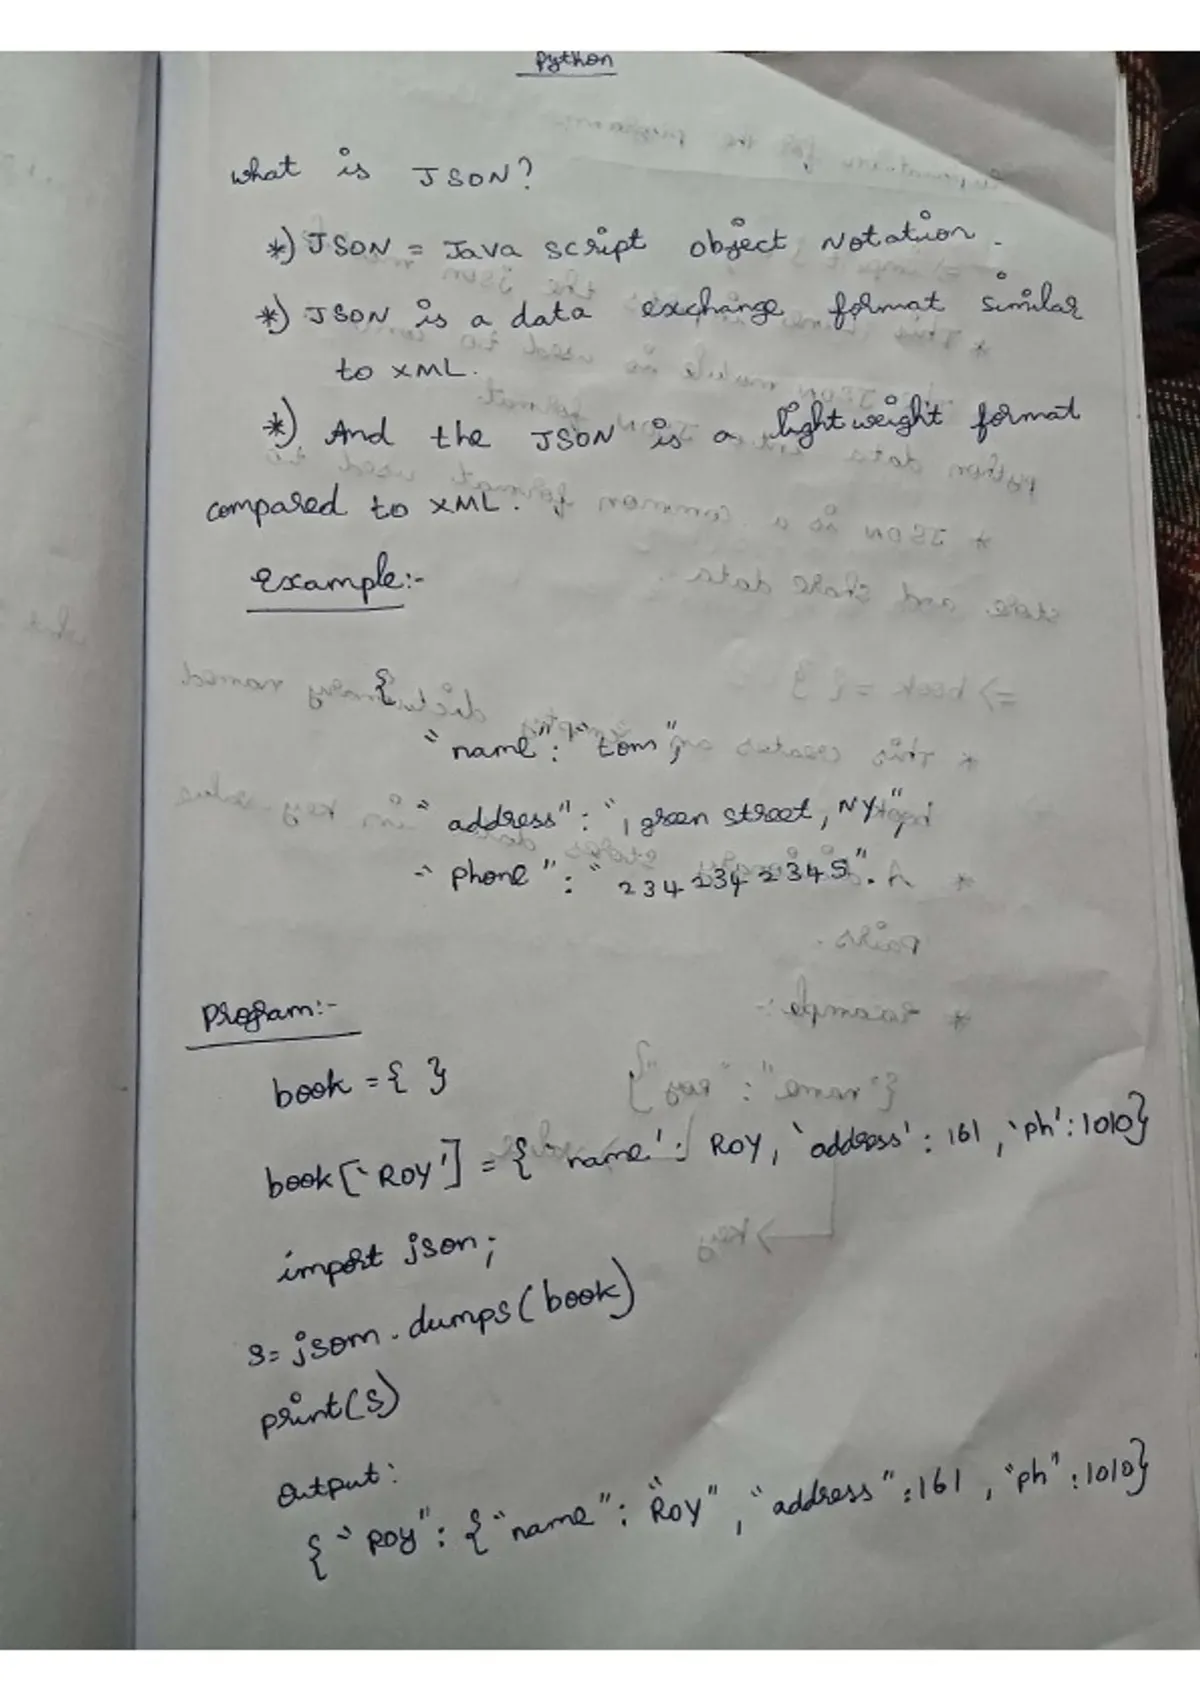 Python
what is JSON?
*) JSON = Java script object Notation.
*) JSON is a data exchange format similar
to XML.
*) And the JSON is a light weight format
compared to XML.
example:-
{
"name": "tom",
"address": "1 green street, NY",
"phone": "2342342345".
Program:-
book = { }
book['ROY'] = { 'name': ROY, 'address': 161, 'ph': 1010}
import json;
s= json.dumps(book)
print(s)
output:
{ "ROY": { "name": "ROY", "address": 161, "ph": 1010}